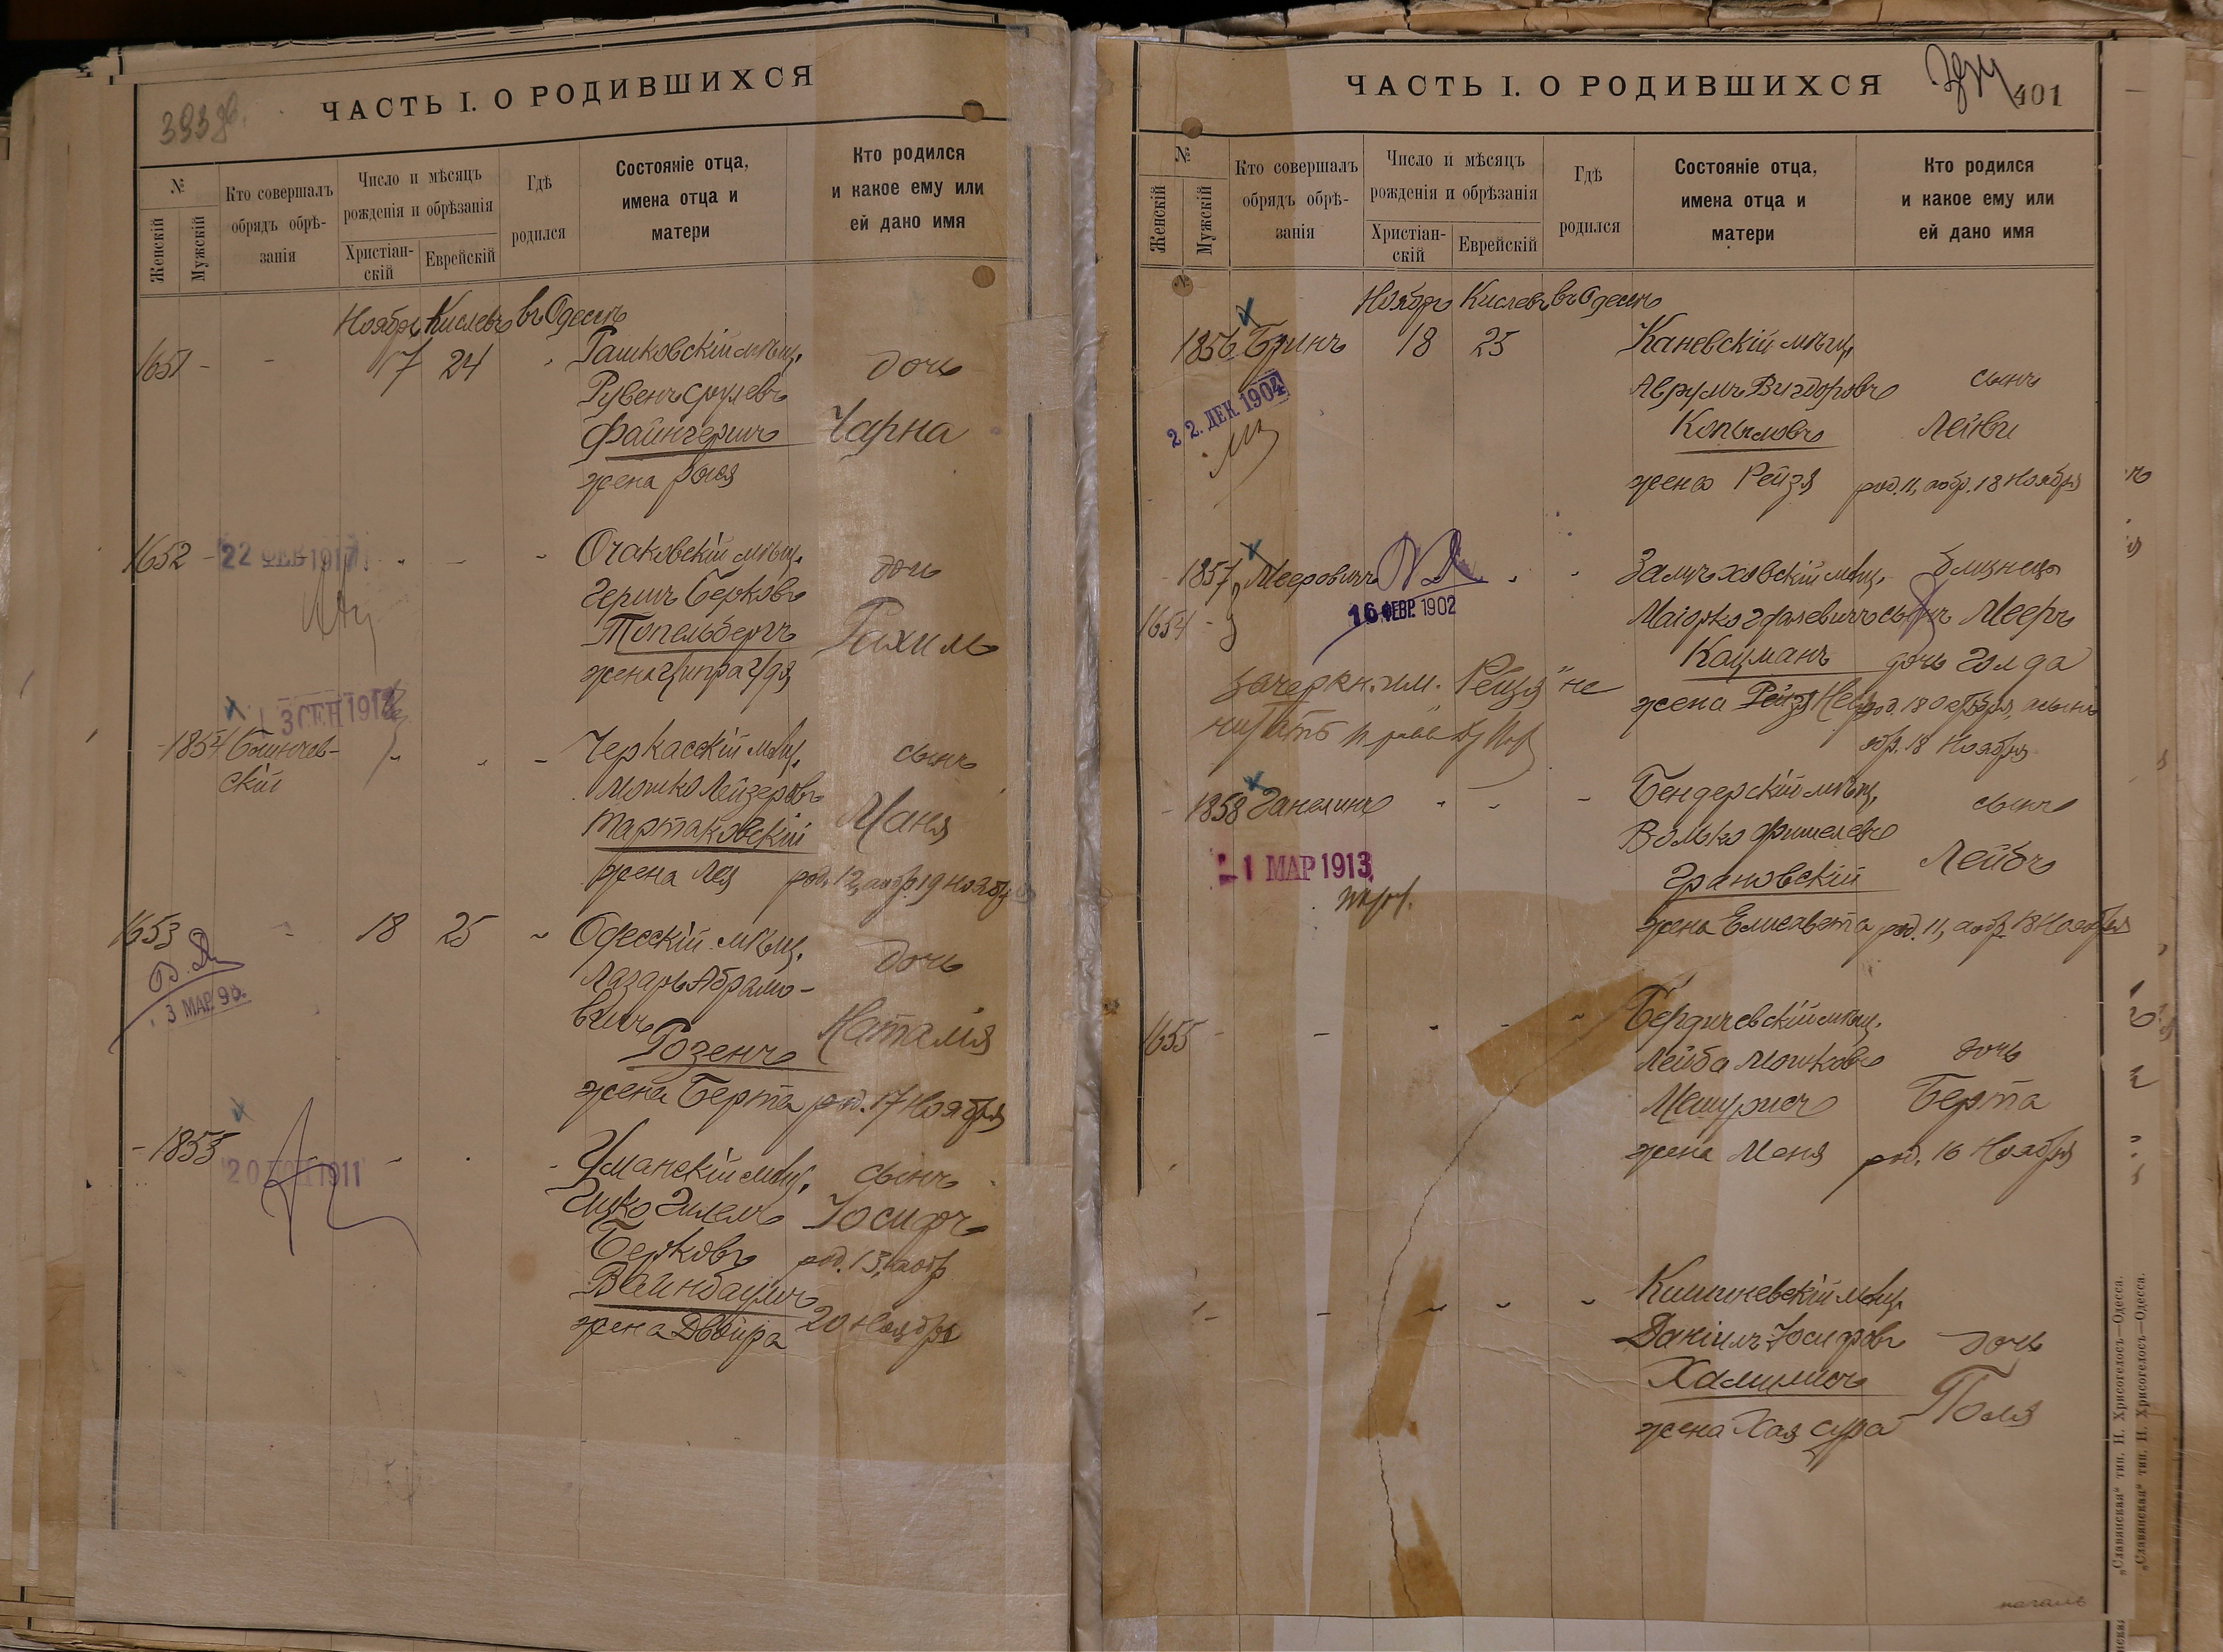 393
ЧАСТЬ I. О РОДИВШИХСЯ
№
Женскій
Мужскій
Кто совершалъ обрядъ обрѣ-занія
Число и мѣсяцъ рожденія и обрѣзанія
Христіан-скій
Еврейскій
Гдѣ родился
Состояніе отца, имена отца и матери
Кто родился и какое ему или ей дано имя
Ноябрь Кислевъ въ Одессѣ
1651 - - 17 24 Рашковскій мѣщ. дочь
Рувенъ Срулевъ
Файнгершъ Чарна
жена Рося
1652 - 22 ФЕВ 1917 Очаковскій мѣщ. дочь
Гершъ Берковъ
Топельбергъ Рахиль
жена Ципра
13 СЕН 191
1854 Очерк
скій Черкасскій мѣщ. сынъ
Мошко Лейзеровъ
Тартаковскій
жена Лея род. 12, а обр. 19 Ноября
1653 - 18 25 Одесскій мѣщ. дочь
3 МАР. 9
Лазарь Абрамо-
вичъ Наталія
Розенъ
жена Берта род. 17 Ноября
- 1855 20 1911 Уманскій мѣщ. сынъ
Ицко Гилель Іосифъ
Берковъ род. 13, а обр
Вайнбаумъ
жена Двойра 20 Ноября
ЧАСТЬ I. О РОДИВШИХСЯ
401
№
Женскій
Мужскій
Кто совершалъ обрядъ обрѣ-занія
Число и мѣсяцъ рожденія и обрѣзанія
Христіан-скій
Еврейскій
Гдѣ родился
Состояніе отца, имена отца и матери
Кто родился и какое ему или ей дано имя
Ноябрь Кислевъ въ Одессѣ
1856 Бринъ 18 25 Каневскій мѣщ.
22. ДЕК. 1904
Аврумъ Вигдоровъ сынъ
Копыловъ Лейви
жена Рейзя род. 11, а обр. 18 Ноября
1857 Мееровичъ близнецы
16 ФЕВР. 1902
1654 сынъ Мееръ
Кацманъ дочь Голда
зачеркн. им. "Рейзя" не
читать
жена Рейзя
обр. 18 Ноября
- 1858 Ганелинъ Бендерскій мѣщ. сынъ
Волько Фишелевъ
1 МАР 1913
Грановскій Лейбъ
жена Елисавета род. 11, а обр. 18 Ноября
1655 - - Бердичевскій мѣщ.
Лейба Мошковъ дочь
Мешурисъ Берта
жена Меня род. 16 Ноября
Кишиневскій мѣщ.
Даніилъ Іосифовъ дочь
Поля
жена Хая Сура
„Славянская“ тип. Н. Хрисогелосъ—Одесса.
„Славянская“ тип. Н. Хрисогелосъ—Одесса.